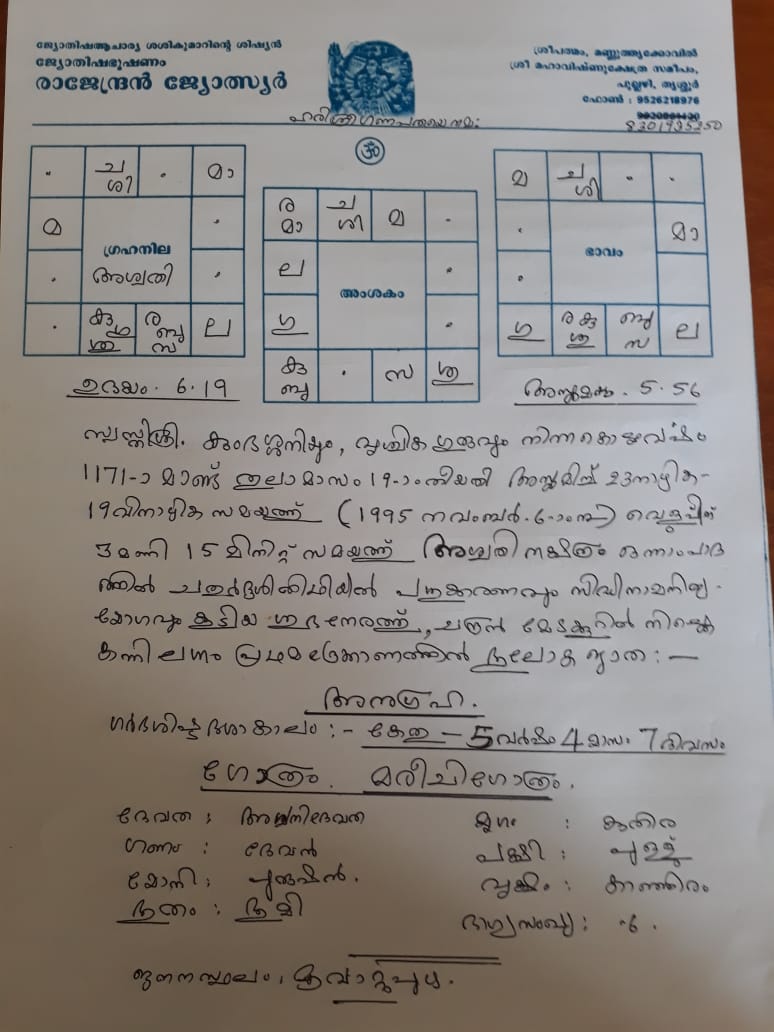 ജ്യോതിഷആചാര്യ ശശികുമാറിന്റെ ശിഷ്യൻ
ജ്യോതിഷഭൂഷണം
രാജേന്ദ്രൻ ജ്യോത്സ്യർ
ശ്രീപത്മം, മണ്ണുത്തുക്കോവിൽ
ശ്രീ മഹാവിഷ്ണുക്ഷേത്ര സമീപം,
പുല്ലഴി, തൃശ്ശൂർ
ഫോൺ : 9526218976
8301935250
ഹരിശ്രീഗണപതയെ നമ:
ॐ
ച
ശി
മാ
മ
ഗ്രഹനില
അശ്വതി
കു ഗു
ശു
ര
ബു
സ
ല
ര
മാ
ച
ശി
മ
ല
അംശകം
ഗു
കു
ബു
സ
ശു
മ
ച
ശി
മാ
ഭാവം
ഗു
ര കു
ശു
ബു
സ
ല
ഉദയം. 6.19
അസ്തമനം. 5.56
സ്വസ്തിശ്രീ. കുംഭശനിയും, വൃശ്ചിക ഗുരുവും നിന്ന കൊല്ലവർഷം
1171-ാ മാണ്ട് തുലാമാസം 19-ാം തീയതി അസ്തമിച്ച് 23നാഴിക-
19വിനാഴിക സമയത്ത് (1995 നവംബർ. 6-ാംനു) വെളുപ്പിന്
3മണി 15 മിനിറ്റ് സമയത്ത് അശ്വതി നക്ഷത്രം ഒന്നാംപാദ
ത്തിൽ ചതുർദ്ദശിതിഥിയിൽ പന്നക്കരണവും സിദ്ധിനാമനിത്യ-
യോഗവും കൂടിയ ശുഭനേരത്ത്, ചന്ദ്രൻ മേടക്കൂറിൽ നിൽക്കെ
കന്നി ലഗ്നം പ്രഥമദ്രേക്കാണത്തിൽ ഭൂലോക ജാത : —
അനുഗ്രഹ.
ഗർഭശിഷ്ട ദശാകാലം :- കേതു – 5വർഷം 4മാസം 7ദിവസം
ഗോത്രം. മരീചിഗോത്രം.
ദേവത : അശ്വനിദേവത
മൃഗം : കുതിര
ഗണം : ദേവൻ
പക്ഷി : പുള്ള്
യോനി : പുരുഷൻ.
വൃക്ഷം : കാഞ്ഞിരം
ഭൂതം : ഭൂമി
ഭാഗ്യസംഖ്യ : 6.
ജനനസ്ഥലം, മൂവാറ്റുപുഴ.